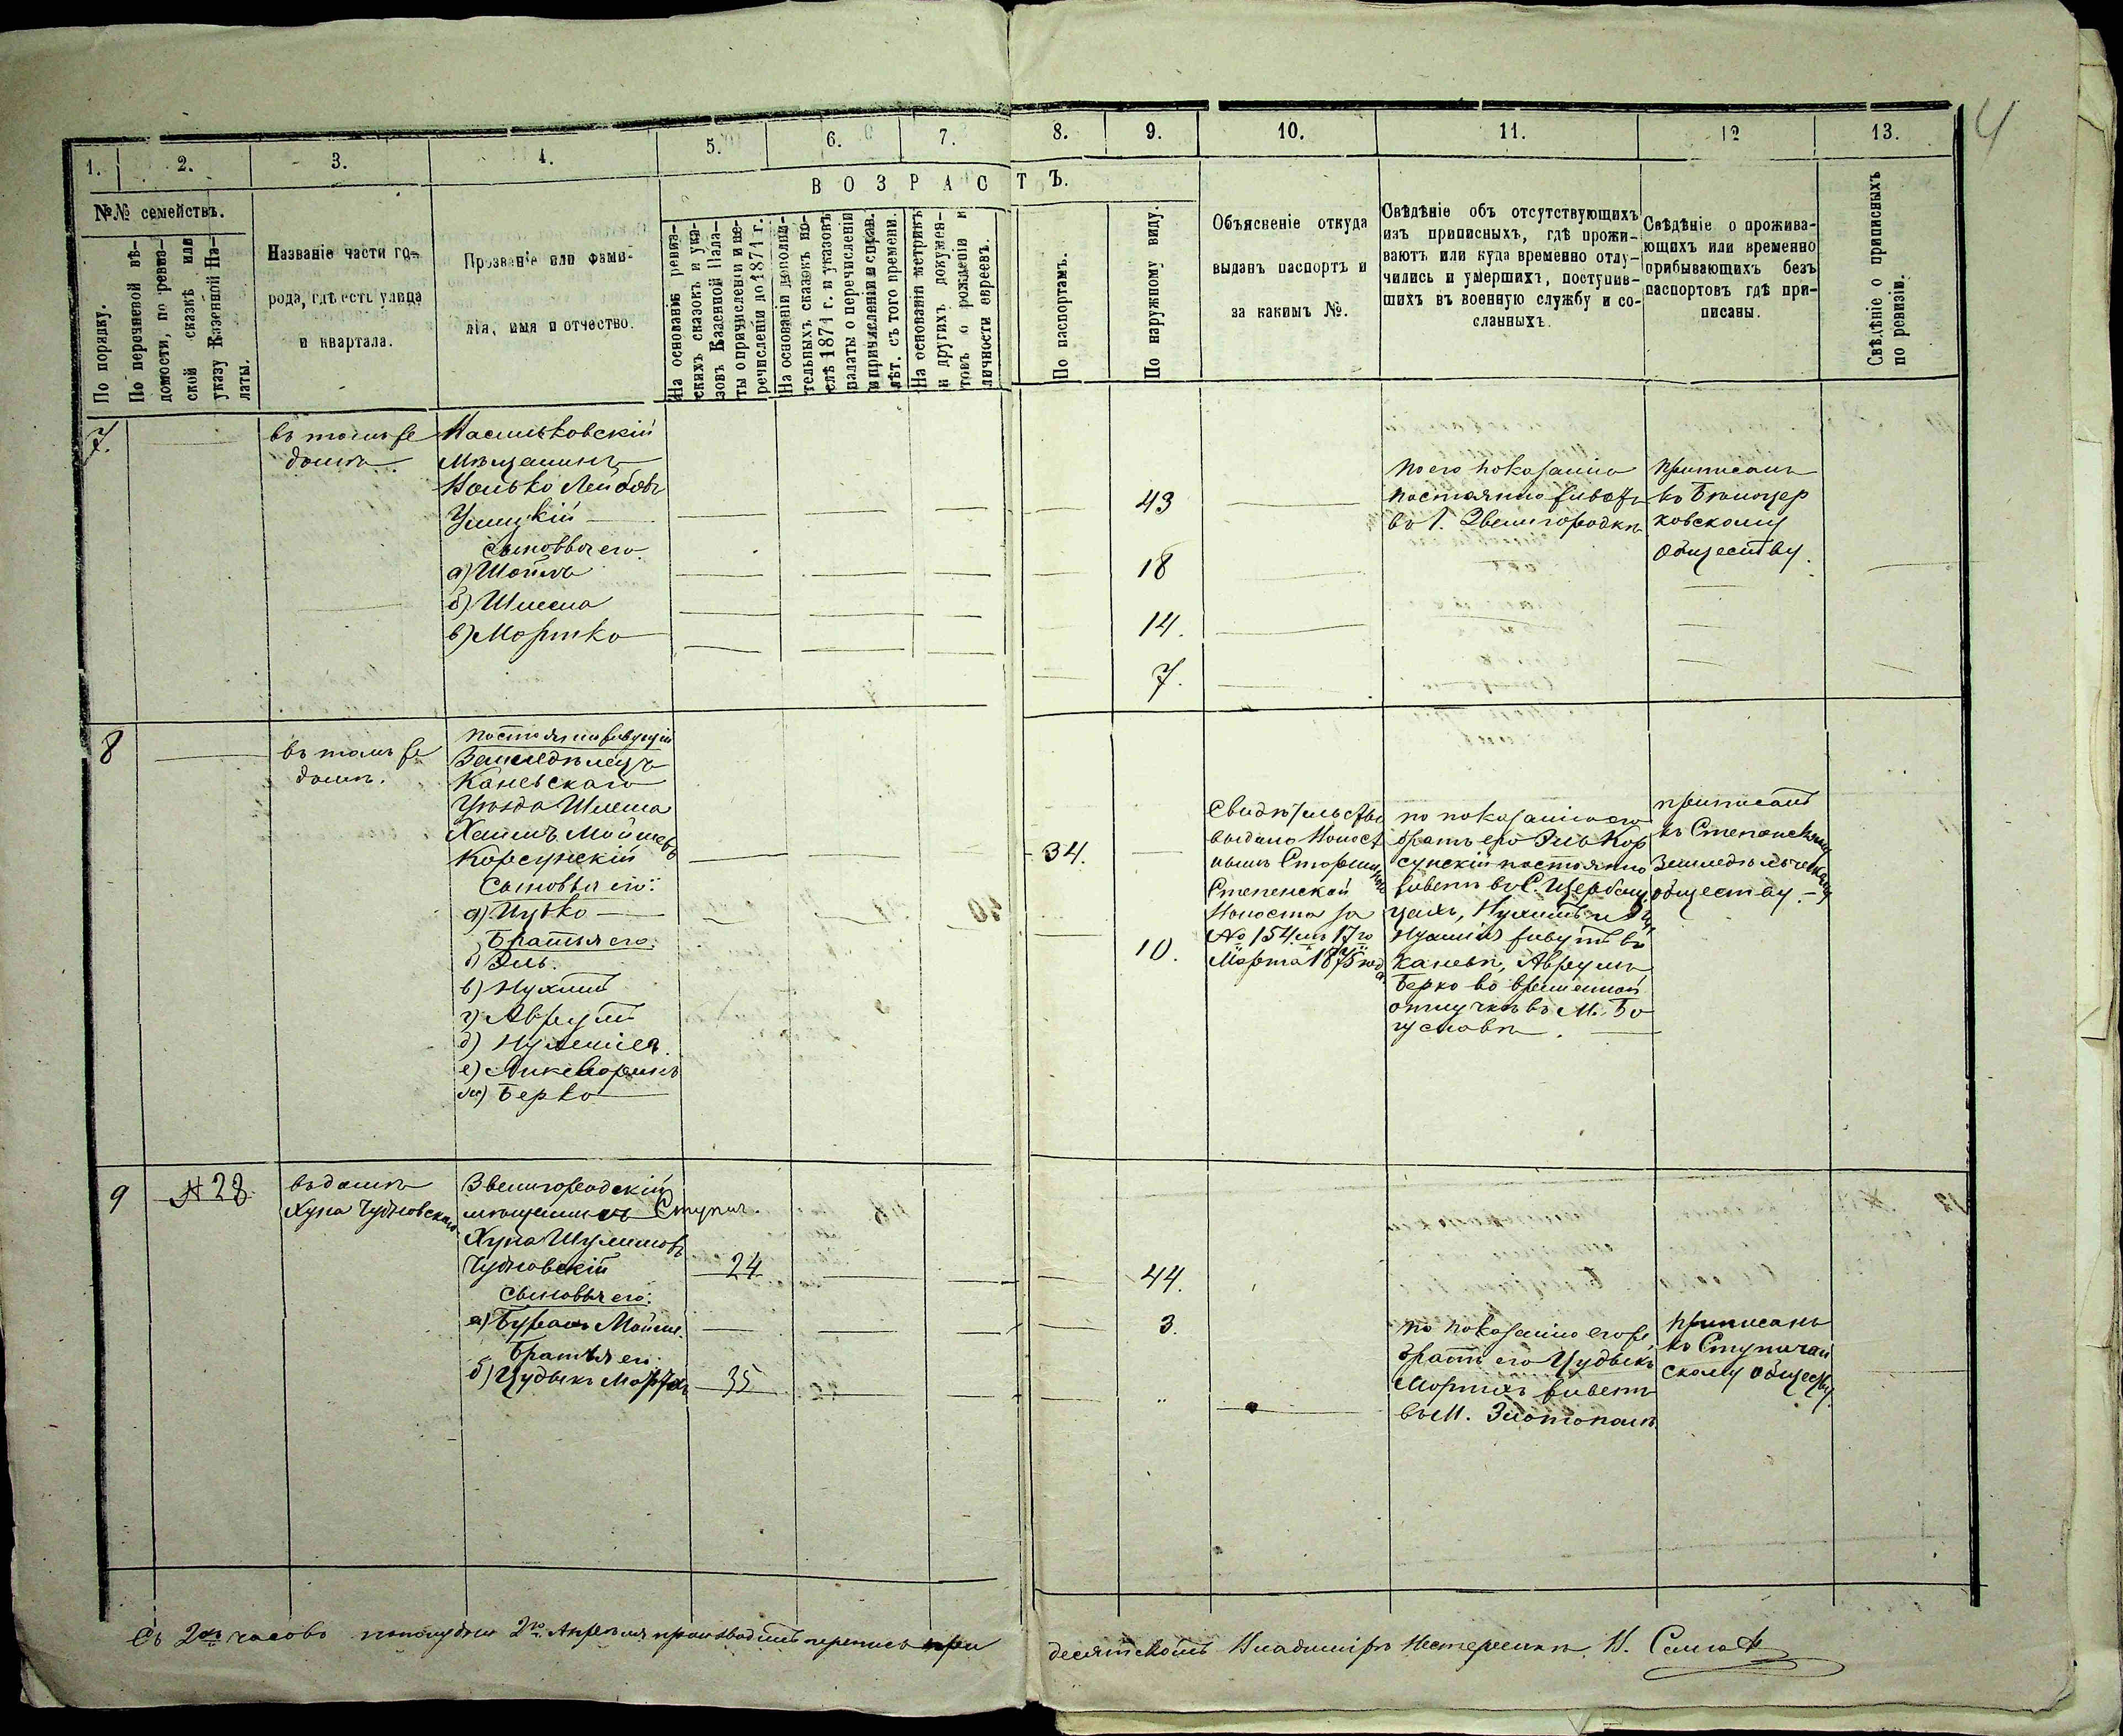 4
1. 2. 3. 4. 5. 6. 7. 8. 9. 10. 11. 12 13.
№№ семействъ.
По порядку.
По перечневой вѣ-
домости, по ревиз-
ской сказкѣ или
указу Казенной Па-
латы.
Названіе части го-
рода, гдѣ есть улица
и квартала.
Прозваніе или фами-
лія, имя и отчество.
ВОЗРАСТЪ.
На основаніи ревиз-
скихъ сказокъ и ука-
зовъ Казенной Пала-
ты о причисленіи и пе-
речисленіи до 1874 г.
На основаніи дополни-
тельныхъ сказокъ по-
слѣ 1874 г. и указовъ
палаты о перечисленіи
и причисленіи и справ.
лѣт. съ того времени.
На основаніи метрикъ
и другихъ докумен-
товъ о рожденіи и
личности евреевъ.
По паспортамъ.
По наружному виду.
Объясненіе откуда
выданъ паспортъ и
за какимъ №.
Свѣдѣніе объ отсутствующихъ
изъ приписныхъ, гдѣ прожи-
ваютъ или куда временно отлу-
чились и умершихъ, поступив-
шихъ въ военную службу и со-
сланныхъ.
Свѣдѣніе о прожива-
ющихъ или временно
прибывающихъ безъ
паспортовъ гдѣ при-
писаны.
Свѣдѣніе о приписныхъ
по ревизіи.
7.
въ томъ же
домѣ.
Васильковскій
Мѣщанинъ
Волько Лейбовъ
Ушицкій
сыновья его
а) Шойлъ
б) Шлема
в) Мортко
43
18
14.
7.
По его показанію
постоянно живетъ
въ г. Звенигородкѣ
Приписанъ
къ Бѣлоцер
ковскому
обществу.
8
въ томъ же
домѣ.
постоянно живущій
Земледѣлецъ
Каневскаго
Уѣзда Шлема
Хаимъ Мойшевъ
Корсунскій
сыновья его:
а) Ицько
Братья его:
б) Эль.
в) Нухимъ
г) Аврумъ
д)
е)
ж) Берко
34.
10.
Свидѣтельство
выдано Волост
нымъ Старшиною
Степенской
Волости за
№ 154 отъ 17го
Марта 1875 года
по показанію его
братъ его Эль Кор
сунскій постоянно
живетъ въ С.
Нухимъ и
живутъ въ
Каневѣ, Аврумъ
Берко во временной
отлучкѣ въ М. Бо
гуславѣ.
приписанъ
къ Степанскому
Земледѣльческому
обществу.
9
№ 28
въ домѣ
Хуна Чудновскаго
Звенигородскій
мѣщанинъ Ступич.
Хуна Шулимовъ
Чудновскій
сыновья его:
а) Мойше.
Братья его:
б) Цудыкъ Мортхъ
24
35
44.
3.
"
по показанію его же
братъ его Цудыкъ
Мортхъ живетъ
въ М. Златополѣ
приписанъ
къ Ступичан
скому обществу.
Съ 2хъ часовъ пополудни 2го Апрѣля производилъ перепись при
десятскомъ Владимірѣ Нестеренкѣ. Н.